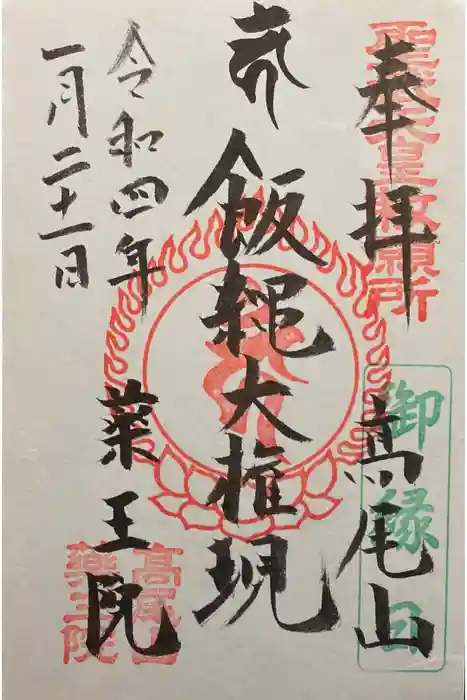 奉拝
高尾山
聖武天皇勅願所
御縁日
飯縄大権現
薬王院
高尾山
薬王院
令和四年
一月二十一日